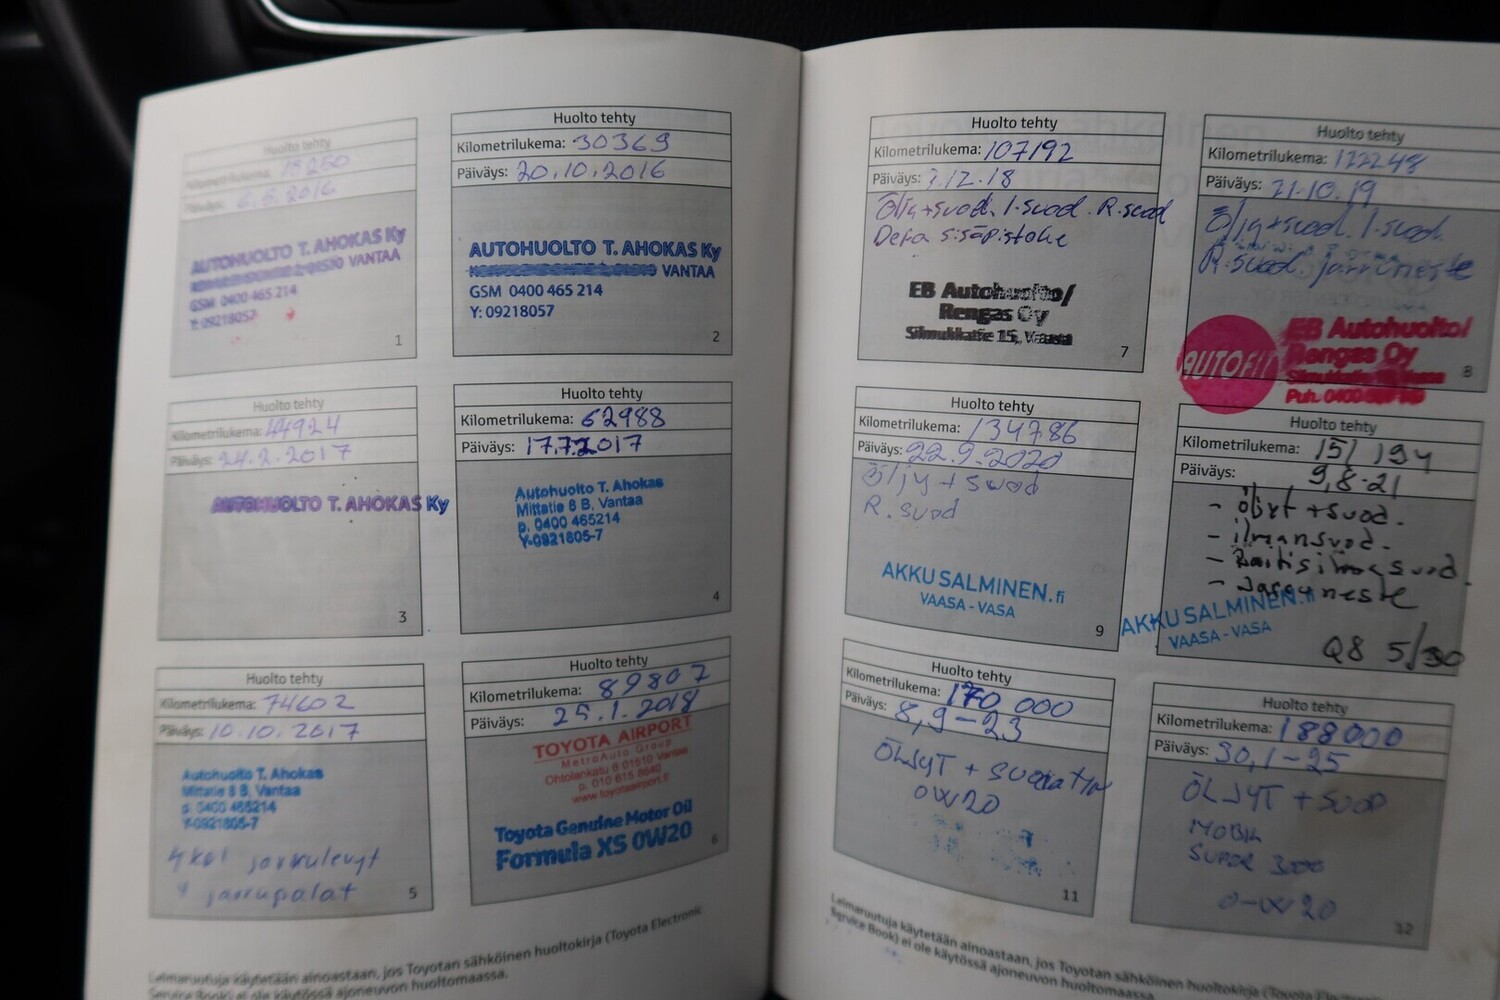 Huolto tehty
Kilometrilukema: 15250
Päiväys: 6.6.2016
AUTOHUOLTO T. AHOKAS Ky
01530 VANTAA
GSM 0400 465 214
Y: 09218057
1
Huolto tehty
Kilometrilukema: 30369
Päiväys: 20.10.2016
AUTOHUOLTO T. AHOKAS Ky
VANTAA
GSM 0400 465 214
Y: 09218057
2
Huolto tehty
Kilometrilukema: 44924
Päiväys: 24.2.2017
AUTOHUOLTO T. AHOKAS Ky
3
Huolto tehty
Kilometrilukema: 62988
Päiväys: 17.7.2017
Autohuolto T. Ahokas
Mittatie 8 B, Vantaa
p. 0400 465214
Y-0921805-7
4
Huolto tehty
Kilometrilukema: 74602
Päiväys: 10.10.2017
Autohuolto T. Ahokas
Mittatie 8 B, Vantaa
p. 0400 465214
Y-0921805-7
4 kpl jarrulevyt
4 jarrupalat
5
Huolto tehty
Kilometrilukema: 89807
Päiväys: 25.1.2018
TOYOTA AIRPORT
MetroAuto Group
Ohtolankatu 8 01510 Vantaa
p. 010 615 8640
www.toyotaairport.fi
Toyota Genuine Motor Oil
Formula XS 0W20
6
Leimaruutuja käytetään ainoastaan, jos Toyotan sähköinen huoltokirja (Toyota Electronic
Service Book) ei ole käytössä ajoneuvon huoltomaassa.
Huolto tehty
Kilometrilukema: 107192
Päiväys: 3.12.18
Öljy+suod. I-suod. R.suod
Defa sisäpistoke
EB Autohuolto/
Rengas Oy
Silmukkatie 15, Vaasa
7
Huolto tehty
Kilometrilukema: 122248
Päiväys: 21.10.19
Öljy+suod. I.suod.
R.suod. jarruneste
AUTOFIT
EB Autohuolto/
Rengas Oy
Puh. 0400
8
Huolto tehty
Kilometrilukema: 134786
Päiväys: 22.9.2020
Öljy + suod
R. suod
AKKU SALMINEN.fi
VAASA - VASA
9
Huolto tehty
Kilometrilukema: 151 194
Päiväys: 9,8-21
- öljyt + suod.
- ilmansuod.
- Raitisilmasuod.
- Jarruneste
AKKU SALMINEN.fi
VAASA - VASA
Q8 5/30
Huolto tehty
Kilometrilukema: 170 000
Päiväys: 8,9-23
ÖLJYT +
0W20
11
Huolto tehty
Kilometrilukema: 188000
Päiväys: 30,1-25
ÖLJYT + SUOD
MOBIL
SUPER 3000
0-W20
12
Leimaruutuja käytetään ainoastaan, jos Toyotan sähköinen huoltokirja (Toyota Electronic
Service Book) ei ole käytössä ajoneuvon huoltomaassa.